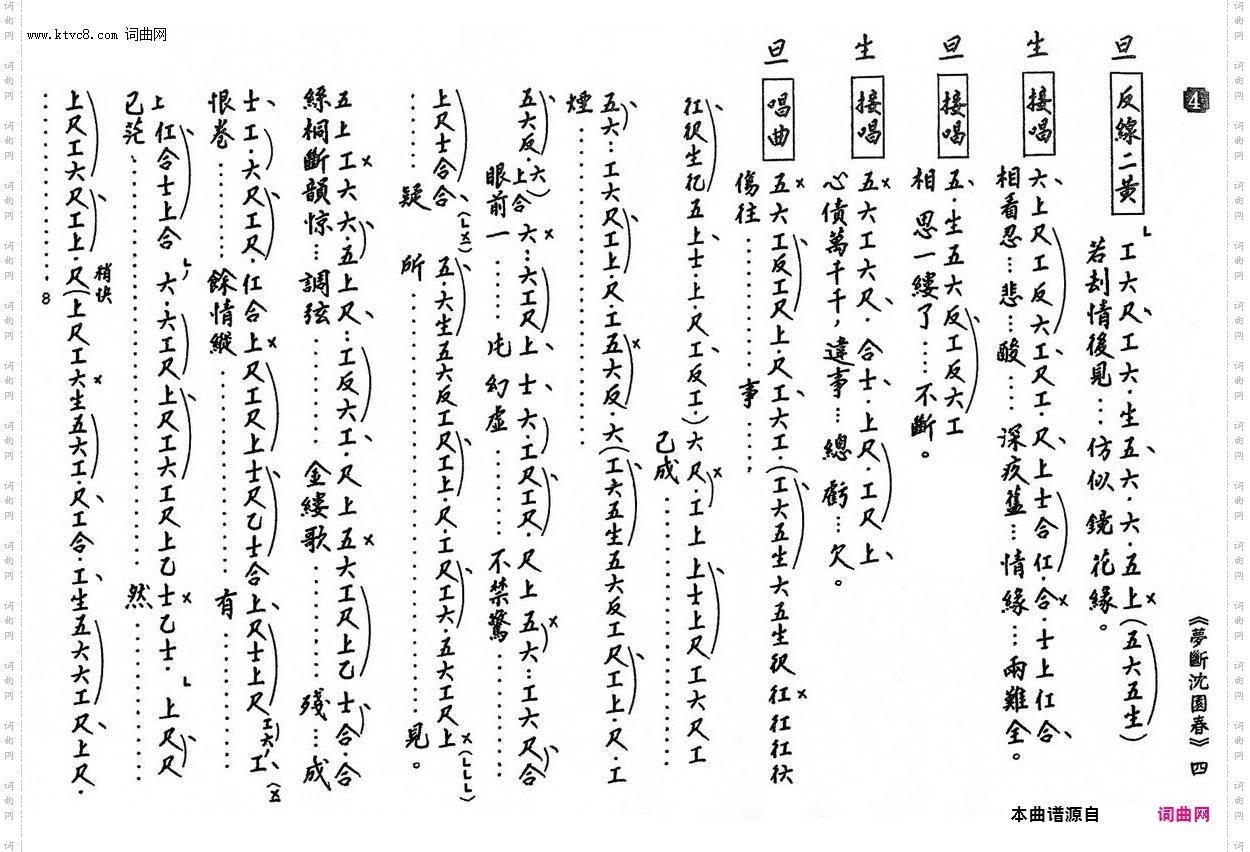 www.ktvc8.com 词曲网
4
《夢斷沈園春》 四
旦 反線二黃 工六尺工六·生五六·六·五上(五六五生)
若刦情後見…仿似鏡花緣。
生 接唱 六上尺工反六工尺工·尺上士合仜·合·士上仜合
相看忍…悲…酸……深疚舊…情緣…兩難全。
旦 接唱 五·生五六反工反六工
相思一縷了……不斷。
生 接唱 五六工六尺·合士·上尺·工尺上
心債萬千千,違事…總虧…欠。
旦 唱曲 五六工反工尺上·尺工六工(工六五生六五生伬仜仜仜伏
傷往……事……,
仜伬生伬五上士·上·尺工·反工·)六尺·工上 上士上尺工六尺工
己成
五六·工六尺工上尺工五六反·六(工六五生五六反工尺工上·尺·工
煙
五六反·(六上合)六…六工尺上 士六·工尺工尺·尺上五六·工六尺合
眼前一……此幻虛……不禁驚
上尺士合合 五·六生五六反工尺工上·尺·工尺工六·五六工尺上
……疑 所……見。
五上工六六·五上尺·工反六工·尺上五六工尺上乙士合合
絲桐斷韻惊…調弦……金縷歌……殘…成
士·工·六尺工尺 仜合上尺工尺上士尺乙士合上尺士上尺工六工
恨卷……餘情縱……有
上仜合士上合 六·六工尺上尺工六工尺上乙士乙士·上尺尺
己茫……然
稍快
上尺工六尺工上·尺(上尺工六生五六工·尺工合·工生五六六工尺上尺·
8
本曲谱源自 词曲网